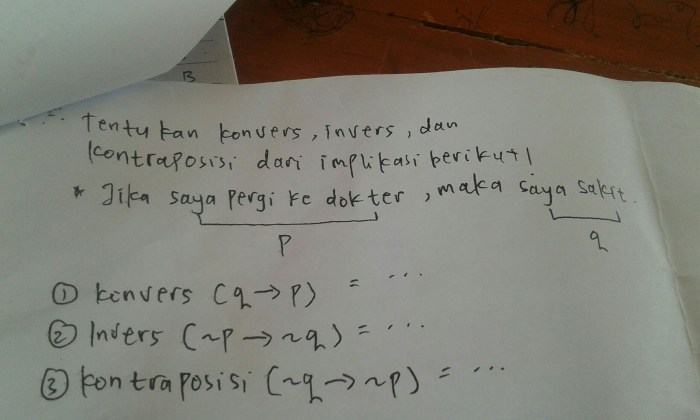 B
Tentukan konvers, invers, dan
kontraposisi dari implikasi berikut!
* Jika saya pergi ke dokter, maka saya sakit.
p q
① konvers (q→p) = ...
② Invers (~p→~q) = ...
③ kontraposisi (~q→~p) = ...